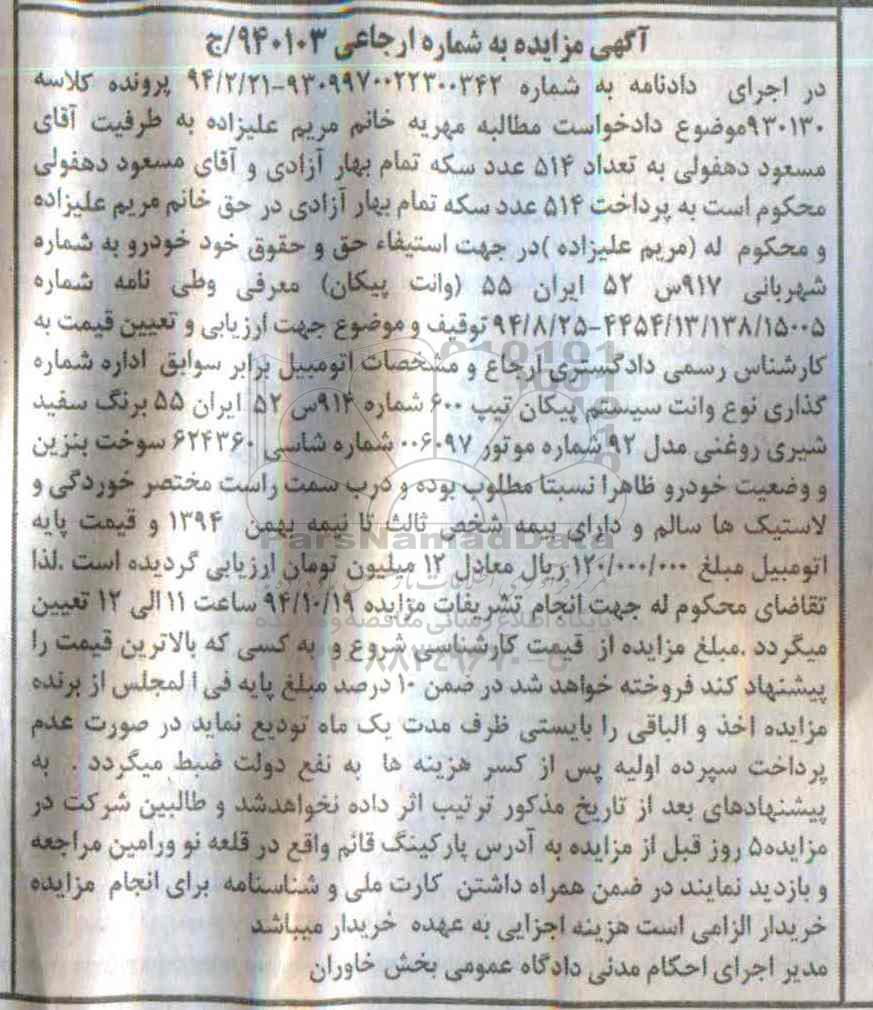 آگهی مزایده به شماره ارجاعی ۹۴۰۱۰۳/ج
در اجرای دادنامه به شماره ۹۳۰۹۹۷۰۰۲۲۳۰۰۳۴۲-۹۴/۲/۲۱ پرونده کلاسه
۹۳۰۱۳۰موضوع دادخواست مطالبه مهریه خانم مریم علیزاده به طرفیت آقای
مسعود دهفولی به تعداد ۵۱۴ عدد سکه تمام بهار آزادی و آقای مسعود دهفولی
محکوم است به پرداخت ۵۱۴ عدد سکه تمام بهار آزادی در حق خانم مریم علیزاده
و محکوم له (مریم علیزاده )در جهت استیفاء حق و حقوق خود خودرو به شماره
شهربانی ۹۱۷س ۵۲ ایران ۵۵ (وانت پیکان) معرفی وطی نامه شماره
۴۴۵۴/۱۳/۱۳۸/۱۵۰۰۵-۹۴/۸/۲۵ توقیف و موضوع جهت ارزیابی و تعیین قیمت به
کارشناس رسمی دادگستری ارجاع و مشخصات اتومبیل برابر سوابق اداره شماره
گذاری نوع وانت سیستم پیکان تیپ ۶۰۰ شماره ۹۱۴س ۵۲ ایران ۵۵ برنگ سفید
شیری روغنی مدل ۹۲ شماره موتور ۰۰۶۰۹۷ شماره شاسی ۶۲۴۳۶۰ سوخت بنزین
و وضعیت خودرو ظاهرا نسبتا مطلوب بوده و درب سمت راست مختصر خوردگی و
لاستیک ها سالم و دارای بیمه شخص ثالث تا نیمه بهمن ۱۳۹۴ و قیمت پایه
اتومبیل مبلغ ۱۲۰/۰۰۰/۰۰۰ریال معادل ۱۲ میلیون تومان ارزیابی گردیده است .لذا
تقاضای محکوم له جهت انجام تشریفات مزایده ۹۴/۱۰/۱۹ ساعت ۱۱ الی ۱۲ تعیین
میگردد .مبلغ مزایده از قیمت کارشناسی شروع و به کسی که بالاترین قیمت را
پیشنهاد کند فروخته خواهد شد در ضمن ۱۰ درصد مبلغ پایه فی المجلس از برنده
مزایده اخذ و الباقی را بایستی ظرف مدت یک ماه تودیع نماید در صورت عدم
پرداخت سپرده اولیه پس از کسر هزینه ها به نفع دولت ضبط میگردد . به
پیشنهادهای بعد از تاریخ مذکور ترتیب اثر داده نخواهدشد و طالبین شرکت در
مزایده۵ روز قبل از مزایده به آدرس پارکینگ قائم واقع در قلعه نو ورامین مراجعه
و بازدید نمایند در ضمن همراه داشتن کارت ملی و شناسنامه برای انجام مزایده
خریدار الزامی است هزینه اجزایی به عهده خریدار میباشد
مدیر اجرای احکام مدنی دادگاه عمومی بخش خاوران
ParsNamadData